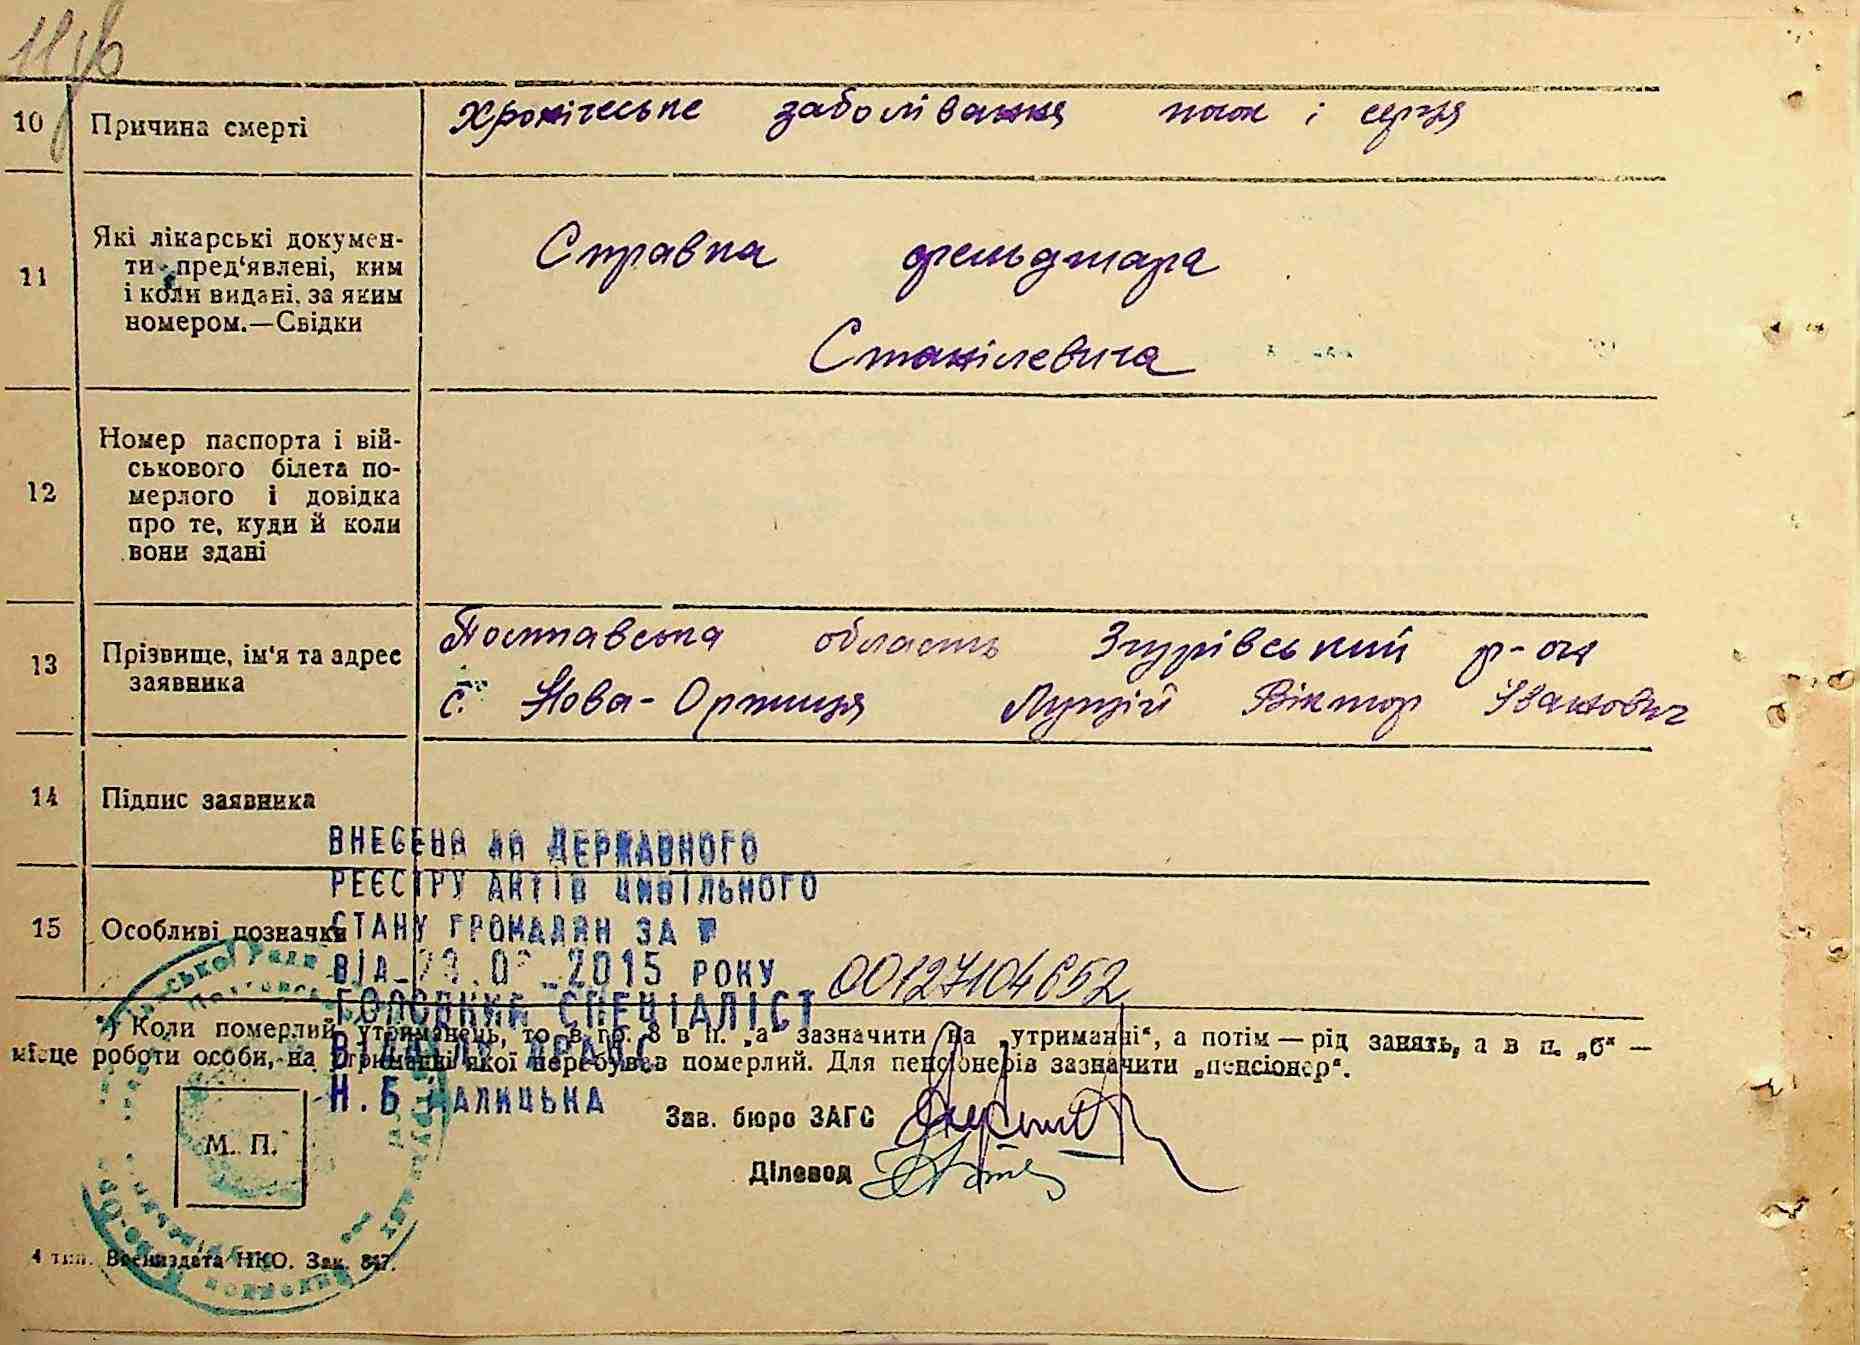 11зв
10 Причина смерті Хронічеське заболівання ниок і серця
11 Які лікарські докумен-
ти пред'явлені, ким
і коли видані, за яким
номером.—Свідки
Справка фельдшара
Станілевича
12 Номер паспорта і вій-
ськового білета по-
мерлого і довідка
про те, куди й коли
вони здані
13 Прізвище, ім'я та адрес
заявника
Полтавська область Згурівський р-он
с. Нова-Оржиця Луцій Віктор Іванович
14 Підпис заявника
ВНЕСЕНО ДО ДЕРЖАВНОГО
РЕЄСТРУ АКТІВ ЦИВІЛЬНОГО
15 Особливі позначки
СТАНУ ГРОМАДЯН ЗА №
ВІД 2015 РОКУ 00127104652
ГОЛОВНИЙ СПЕЦІАЛІСТ
*) Коли померлий утриманець, то в гр. 8 в п. „а" зазначити на „утриманні", а потім — рід занять, а в п. „б" —
місце роботи особи, на утриманні якої перебував померлий. Для пенсіонерів зазначити „пенсіонер".
ВІДДІЛУ ДРАЦС
Н.Б
Зав. бюро ЗАГС
М. П.
Діловод
4 тип. Воениздата НКО. Зак. 847.